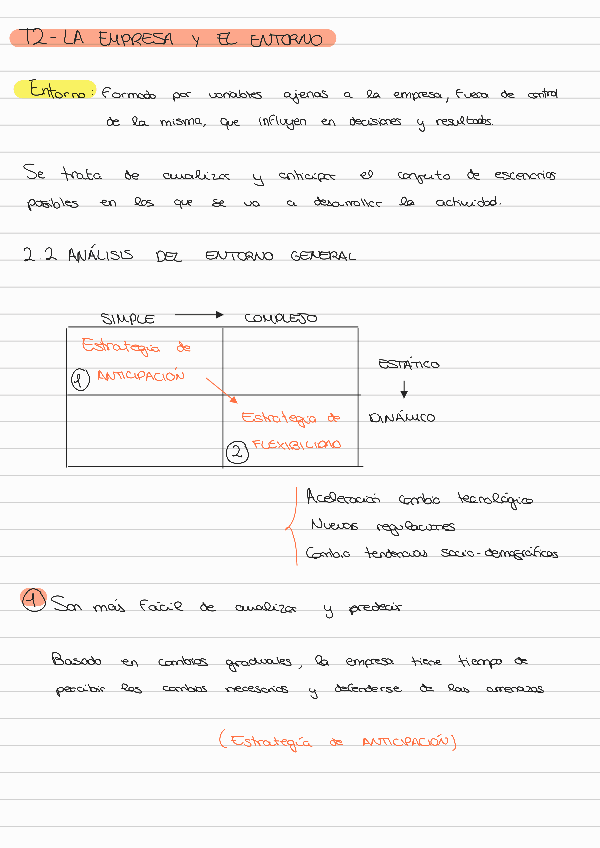 T2-LA EMPRESA Y EL ENTORNO
Entorno: Formado por variables ajenas a la empresa, fuera de control
de la misma, que influyen en decisiones y resultados.
Se trata de analizar y anticipar el conjunto de escenarios
posibles en los que se va a desarrollar la actividad.
2.2 ANÁLISIS DEL ENTORNO GENERAL
SIMPLE → COMPLEJO
Estrategia de
1 ANTICIPACIÓN
ESTÁTICO
↓
Estrategia de
DINÁMICO
2 FLEXIBILIDAD
Aceleración cambio tecnológico
Nuevas regulaciones
Cambio tendencias socio-demográficas
1 Son más fácil de analizar y predecir
Basado en cambios graduales, la empresa tiene tiempo de
percibir los cambios necesarios y defenderse de las amenazas
(Estrategía de ANTICIPACIÓN)